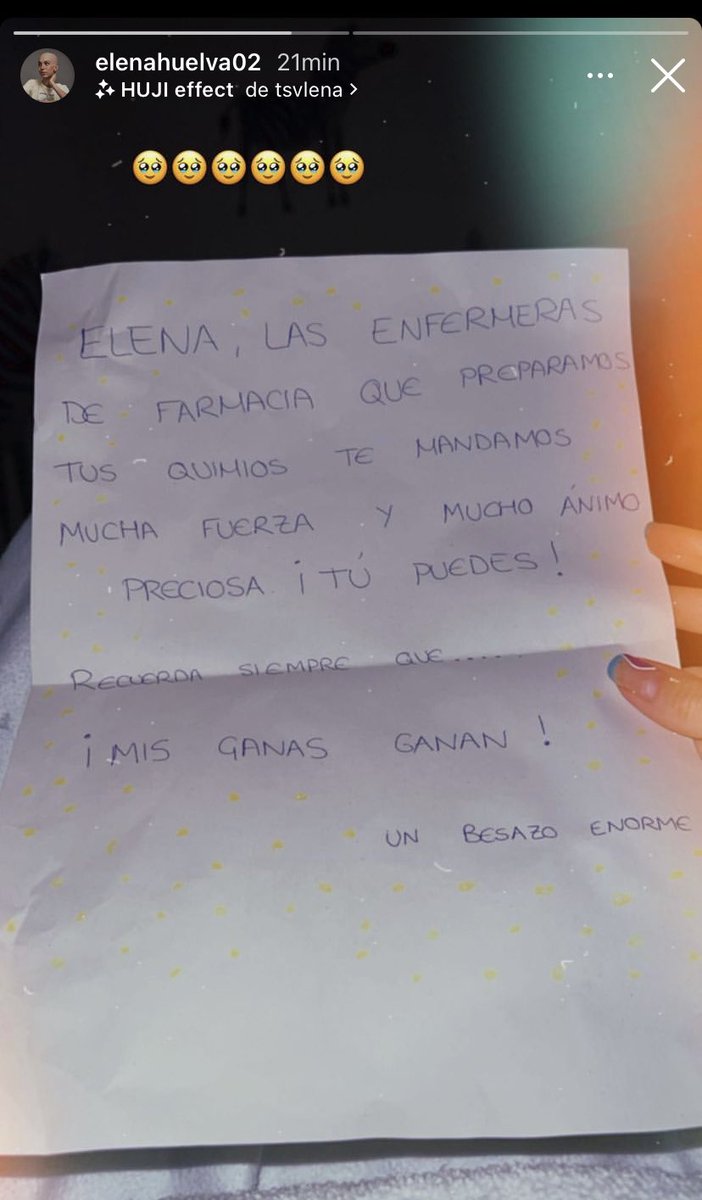 elenahuelva02 21min
HUJI effect de tsvlena >
🥹🥹🥹🥹🥹🥹
ELENA, LAS ENFERMERAS
DE FARMACIA QUE PREPARAMOS
TUS QUIMIOS TE MANDAMOS
MUCHA FUERZA Y MUCHO ÁNIMO
PRECIOSA ¡TÚ PUEDES!
RECUERDA SIEMPRE QUE.....
¡MIS GANAS GANAN!
UN BESAZO ENORME